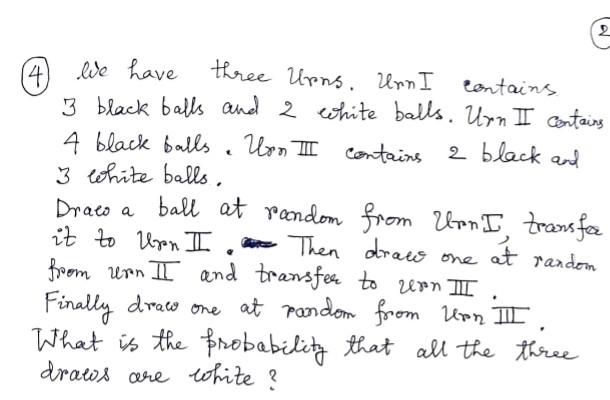 2
④ We have three Urns. Urn I contains
3 black balls and 2 white balls. Urn II contains
4 black balls. Urn III contains 2 black and
3 white balls.
Draw a ball at random from Urn I, transfer
it to Urn II. Then draw one at random
from urn II and transfer to urn III.
Finally draw one at random from Urn III.
What is the probability that all the three
draws are white?